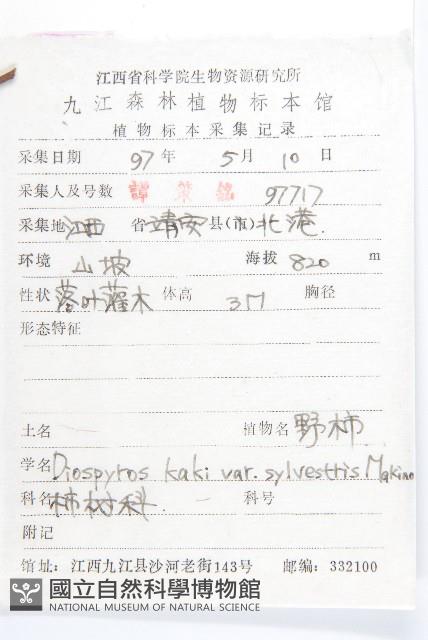 江西省科学院生物资源研究所
九江森林植物标本馆
植物标本采集记录
采集日期 97年 5月 10日
采集人及号数 譚策銘 97717
采集地 江西 省 靖安 县(市) 北港.
环境 山坡 海拔 820 m
性状 落叶灌木 体高 3M 胸径
形态特征
土名 植物名 野柿
学名 Diospyros kaki var. sylvestris Makino
科名 柿树科. 科号
附记
馆址: 江西九江县沙河老街143号 邮编: 332100
國立自然科學博物館
NATIONAL MUSEUM OF NATURAL SCIENCE